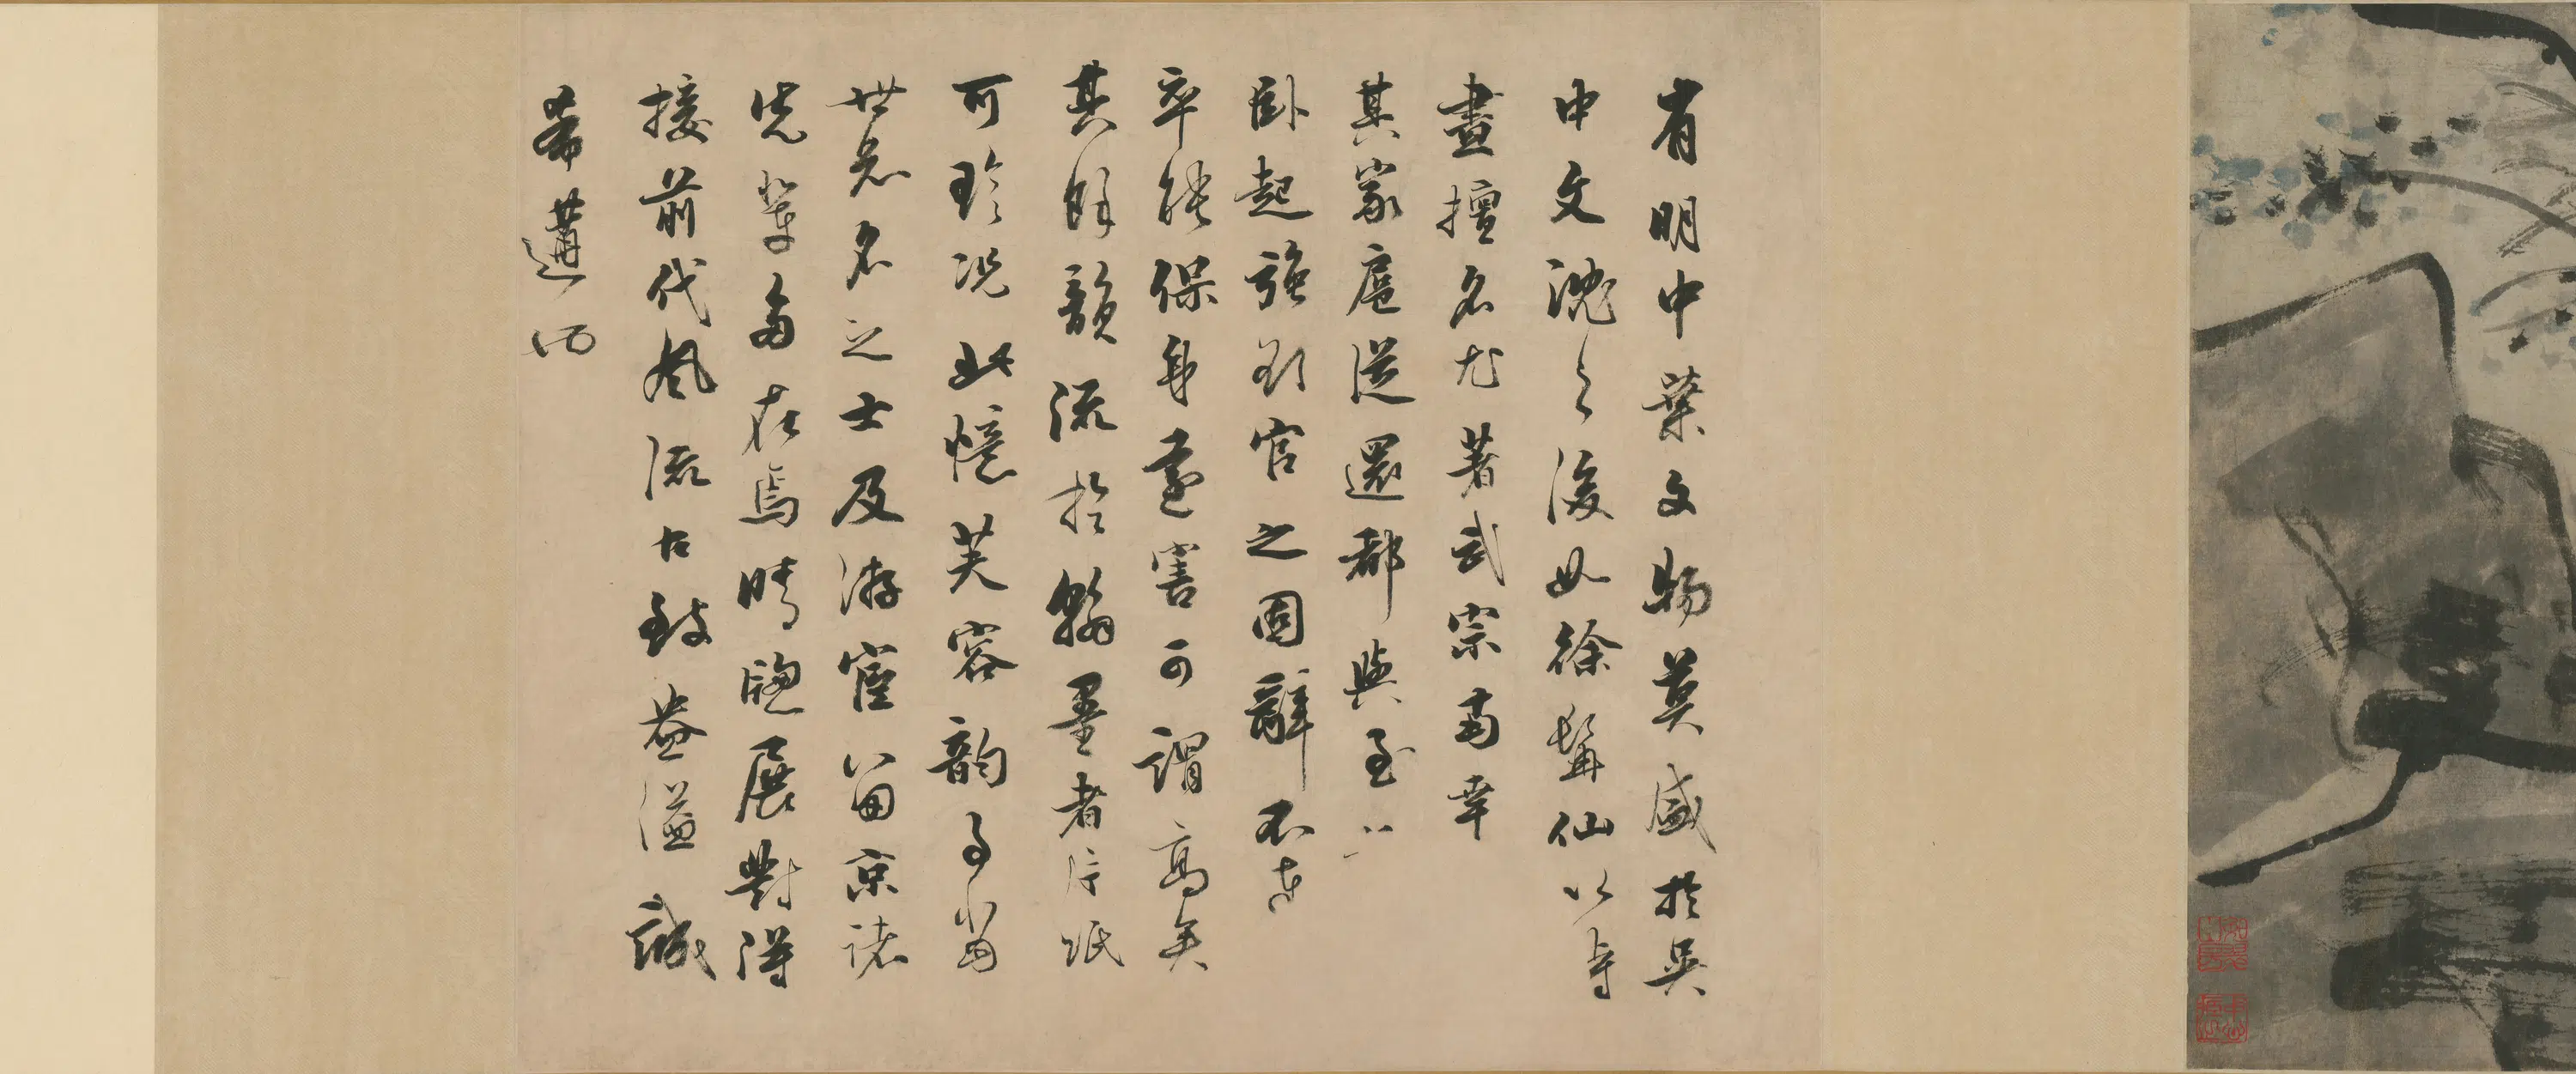 有明中葉文物莫盛於吳
中文沈之後如徐髯仙以詩
畫擅名尤著武宗南幸
其家扈從還都與至
臥起強
官之固辭不受
卒能保身遠害可謂高矣
其餘韻流於翰墨者片紙
可珍況此憶芙蓉韵事當
世知名之士及游宦留京諸
先輩多在焉晴窗展對得
接前代風流古致益溢誠
希遘